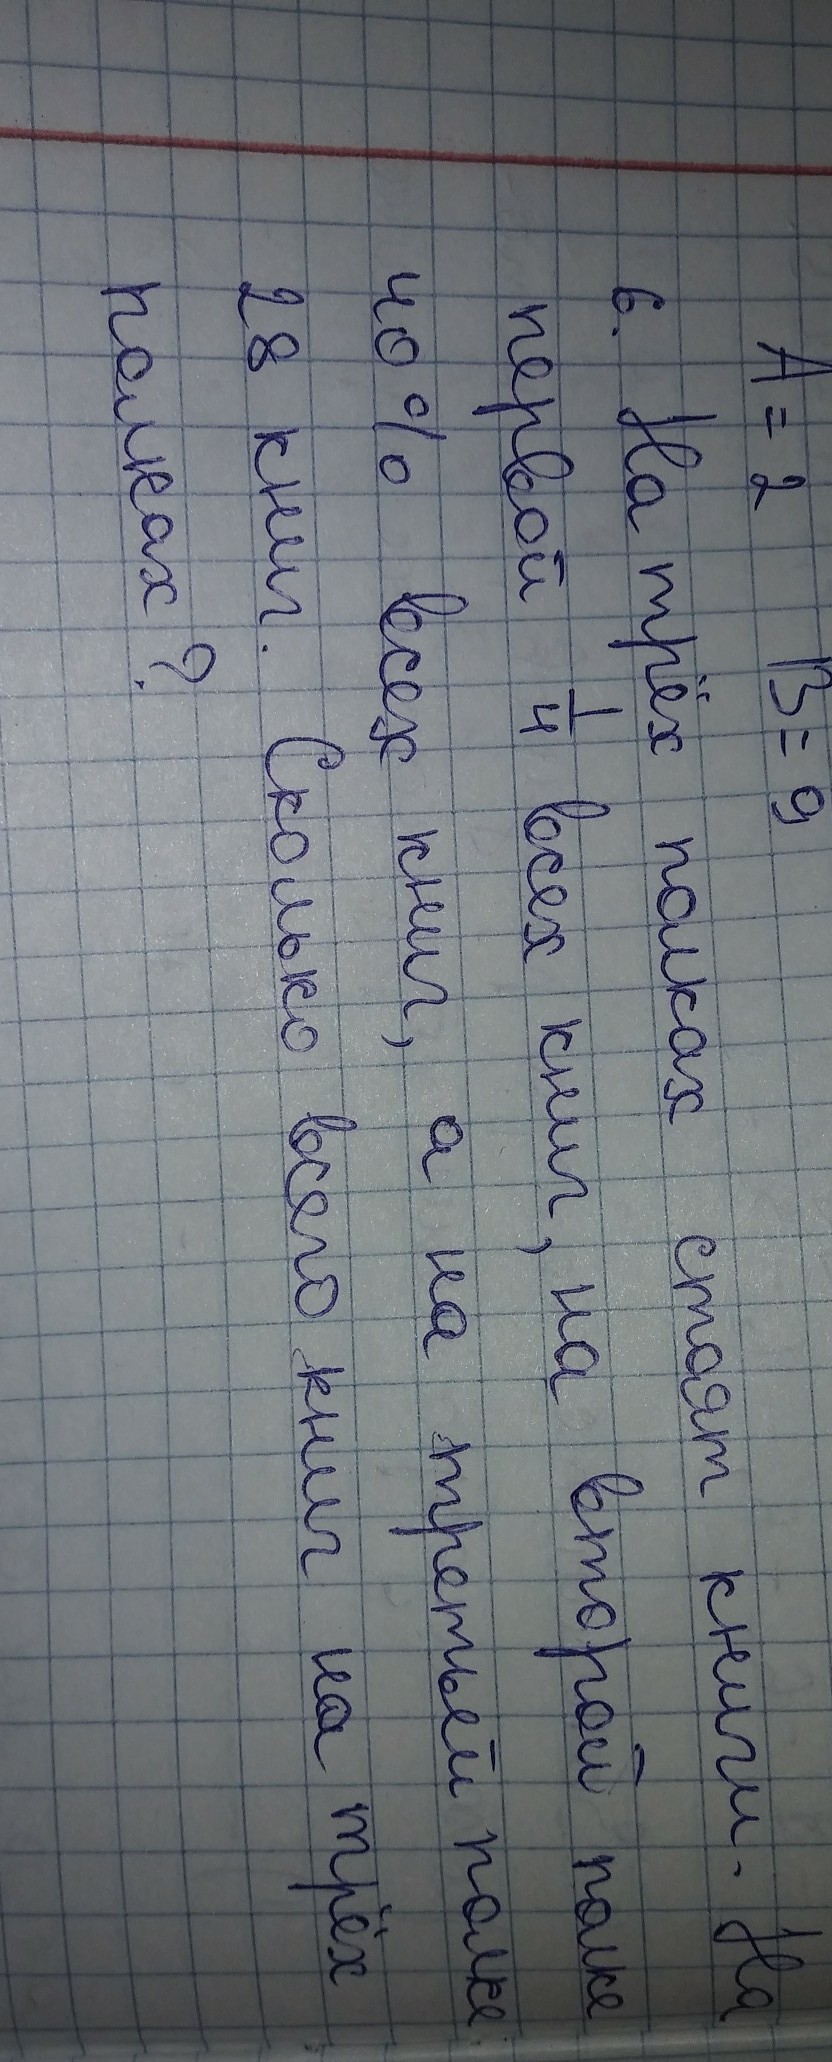 А = 2 В = 9
6. На трёх полках стоят книги. На
первой 1/4 всех книг, на второй полке
40% всех книг, а на третьей полке
28 книг. Сколько всего книг на трёх
полках?